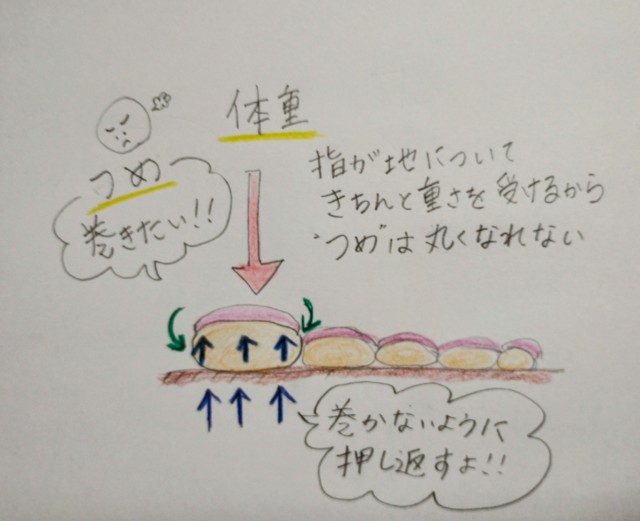 体重
つめ
巻きたい!!
指が地について
きちんと重さを受けるから
"つめ"は丸くなれない
巻かないように
押し返すよ!!